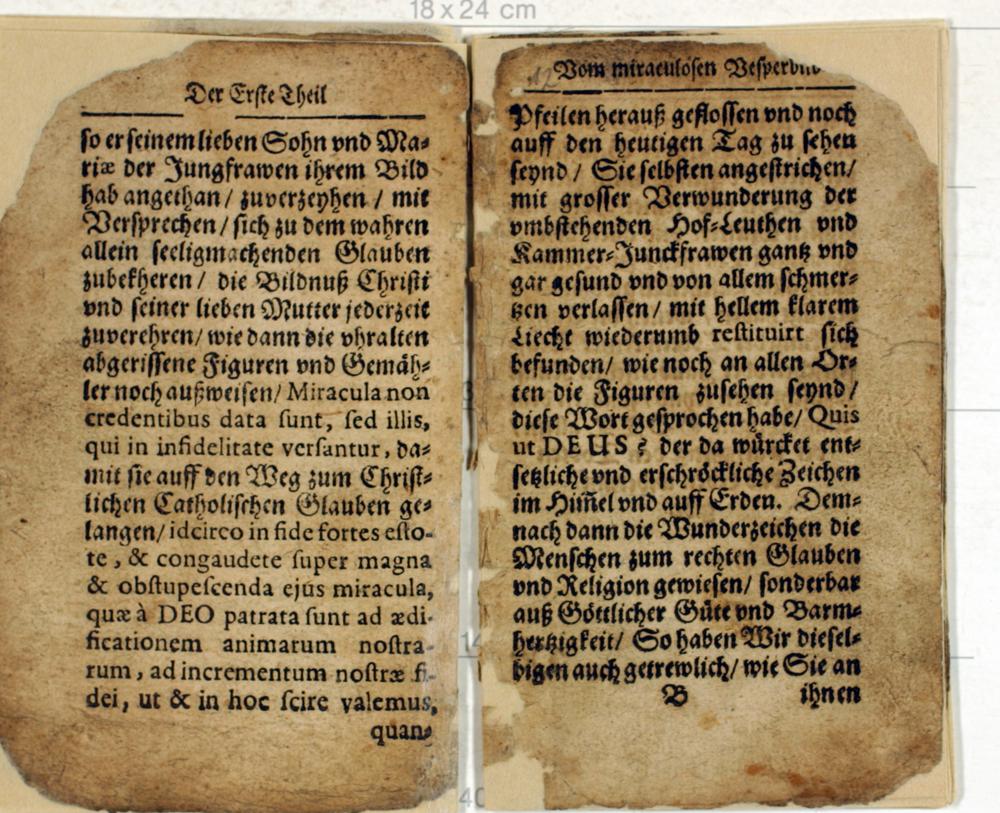 18 x 24 cm
Der Erste Theil
so er seinem lieben Sohn vnd Ma⸗
riæ der Jungfrawen ihrem Bild
hab angethan / zuverzeyhen / mit
Versprechen / sich zu dem wahren
allein seeligmachenden Glauben
zubekheren / die Bildnuß Christi
vnd seiner lieben Mutter jederzeit
zuverehren / wie dann die vhralten
abgerissene Figuren vnd Gemäh⸗
ler noch außweisen / Miracula non
credentibus data sunt, sed illis,
qui in infidelitate versantur, da⸗
mit sie auff den Weg zum Christ⸗
lichen Catholischen Glauben ge⸗
langen / idcirco in fide fortes esto-
te, & congaudete super magna
& obstupescenda ejus miracula,
quæ à DEO patrata sunt ad ædi-
ficationem animarum nostra-
rum, ad incrementum nostræ fi-
dei, ut & in hoc scire valemus,
quan⸗
12
Vom miraculosen Vesperbild
Pfeilen herauß geflossen vnd noch
auff den heutigen Tag zu sehen
seynd / Sie selbsten angestrichen /
mit grosser Verwunderung der
vmbstehenden Hof⸗Leuthen vnd
Kammer⸗Junckfrawen gantz vnd
gar gesund vnd von allem schmer⸗
tzen verlassen / mit hellem klarem
Liecht wiederumb restituirt sich
befunden / wie noch an allen Or⸗
ten die Figuren zusehen seynd /
diese Wort gesprochen habe / Quis
ut DEUS? der da würcket ent⸗
setzliche vnd erschröckliche Zeichen
im Him̃el vnd auff Erden. Dem⸗
nach dann die Wunderzeichen die
Menschen zum rechten Glauben
vnd Religion gewiesen / sonderbar
auß Göttlicher Güte vnd Barm⸗
hertzigkeit / So haben Wir diesel⸗
bigen auch getrewlich / wie Sie an
B ihnen